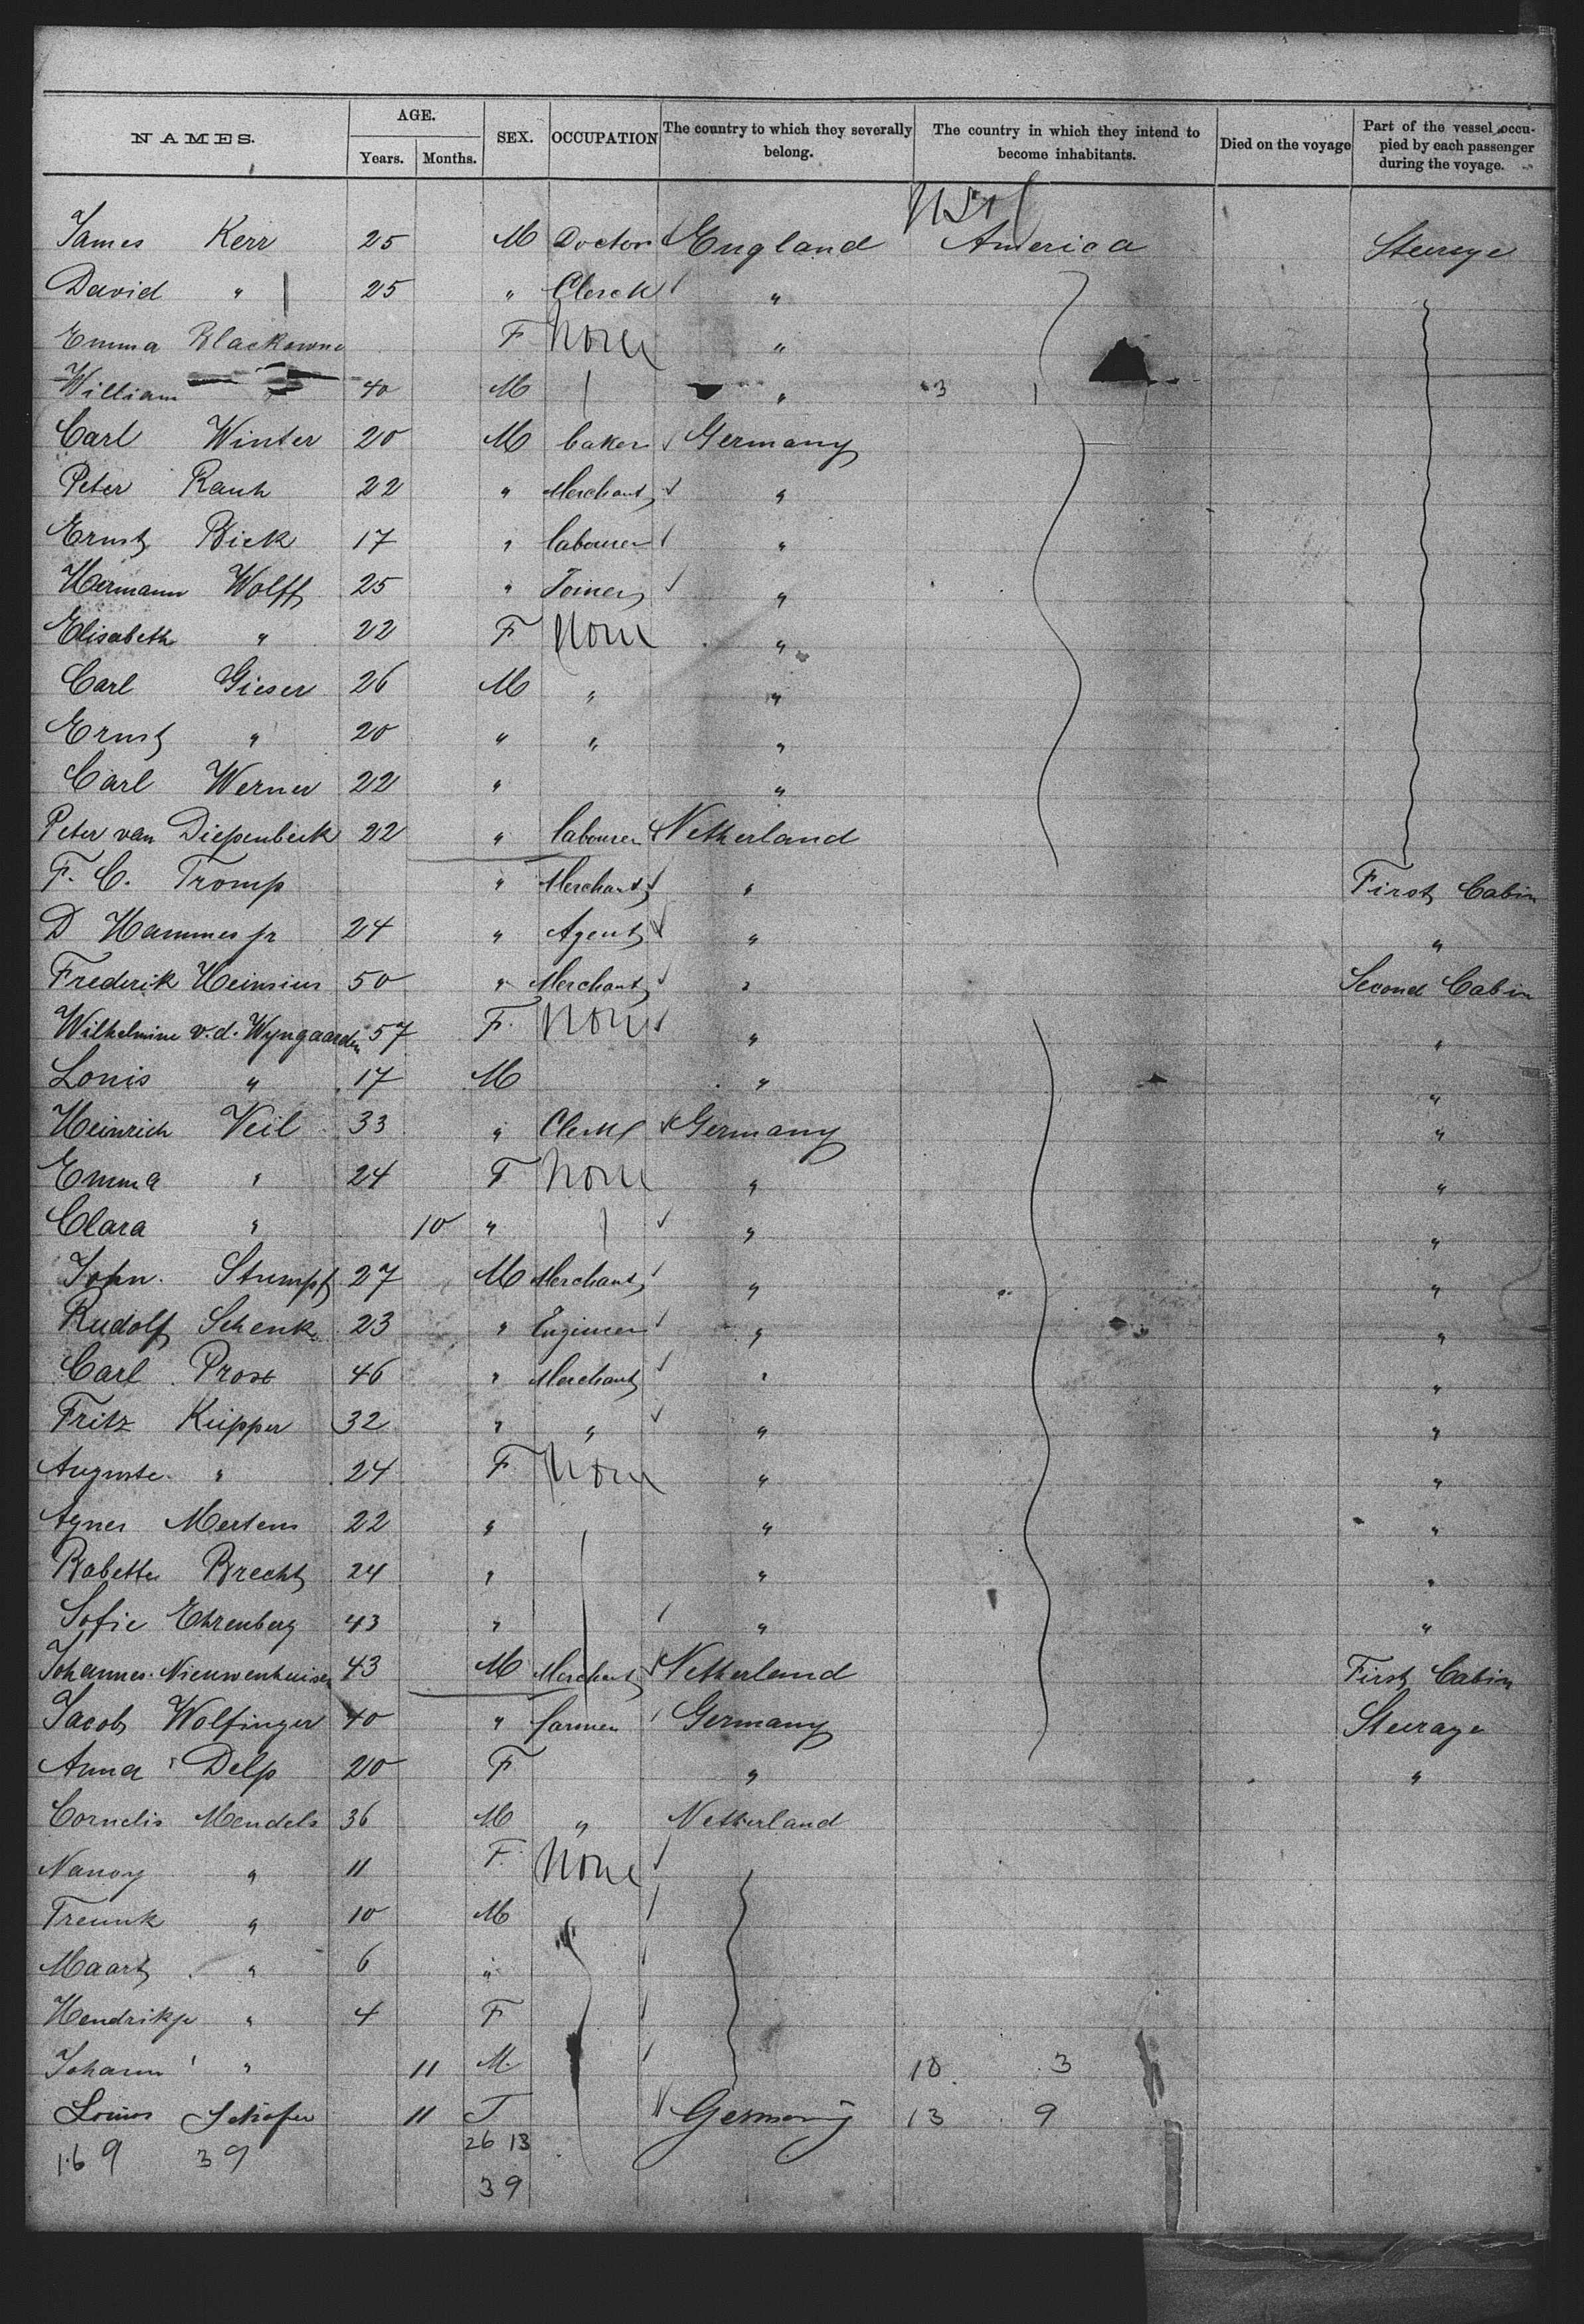 NAMES. AGE. SEX. OCCUPATION The country to which they severally belong. The country in which they intend to become inhabitants. Died on the voyage Part of the vessel occupied by each passenger during the voyage.
Years. Months.
James Kerr 25 M Doctor England America Steerage
David " 25 " Clerck "
Emma F None "
William 40 M "
3
Carl Winter 20 M baker Germany
Peter Rauh 22 " Merchant "
Ernst Bick 17 " labourer "
Hermann Wolff 25 " Joiner "
Elisabeth " 22 F None "
Carl Gieser 26 M " "
Ernst " 20 " " "
Carl Werner 22 " "
Peter van Diepenbeek 22 " labourer Netherland
F. C. Tromp " Merchant " First Cabin
D Hammes jr 24 " Agent " "
Frederik Heinsius 50 " Merchant " Second Cabin
Wilhelmine v.d. Wyngaarden 57 F. None " "
Louis " 17 M " "
Heinrich Veil 33 " Clerk Germany "
Emma " 24 F None " "
Clara " 10 " " "
John Stumpf 27 M Merchant " "
Rudolf Schenk 23 " Engineer " "
Carl 46 " Merchant " "
Fritz Küpper 32 " " " "
Auguste " 24 F None " "
Agnes Mertens 22 " " "
Babette Brecht 24 " " "
Sofie Ehrenberg 43 " " "
Johannes Nieuwenhuisen 43 M Merchant Netherland First Cabin
Jacob Wolfinger 40 " farmer Germany Steerage
Anna Delp 20 F " "
Cornelis Mendels 36 M " Netherland
Nancy " 11 F. None
" 10 M
Maart " 6 "
Hendrikje " 4 F
Johann " 11 M. 10 3
Schäfer 11 Germany 13 9
169 39 26 13
39